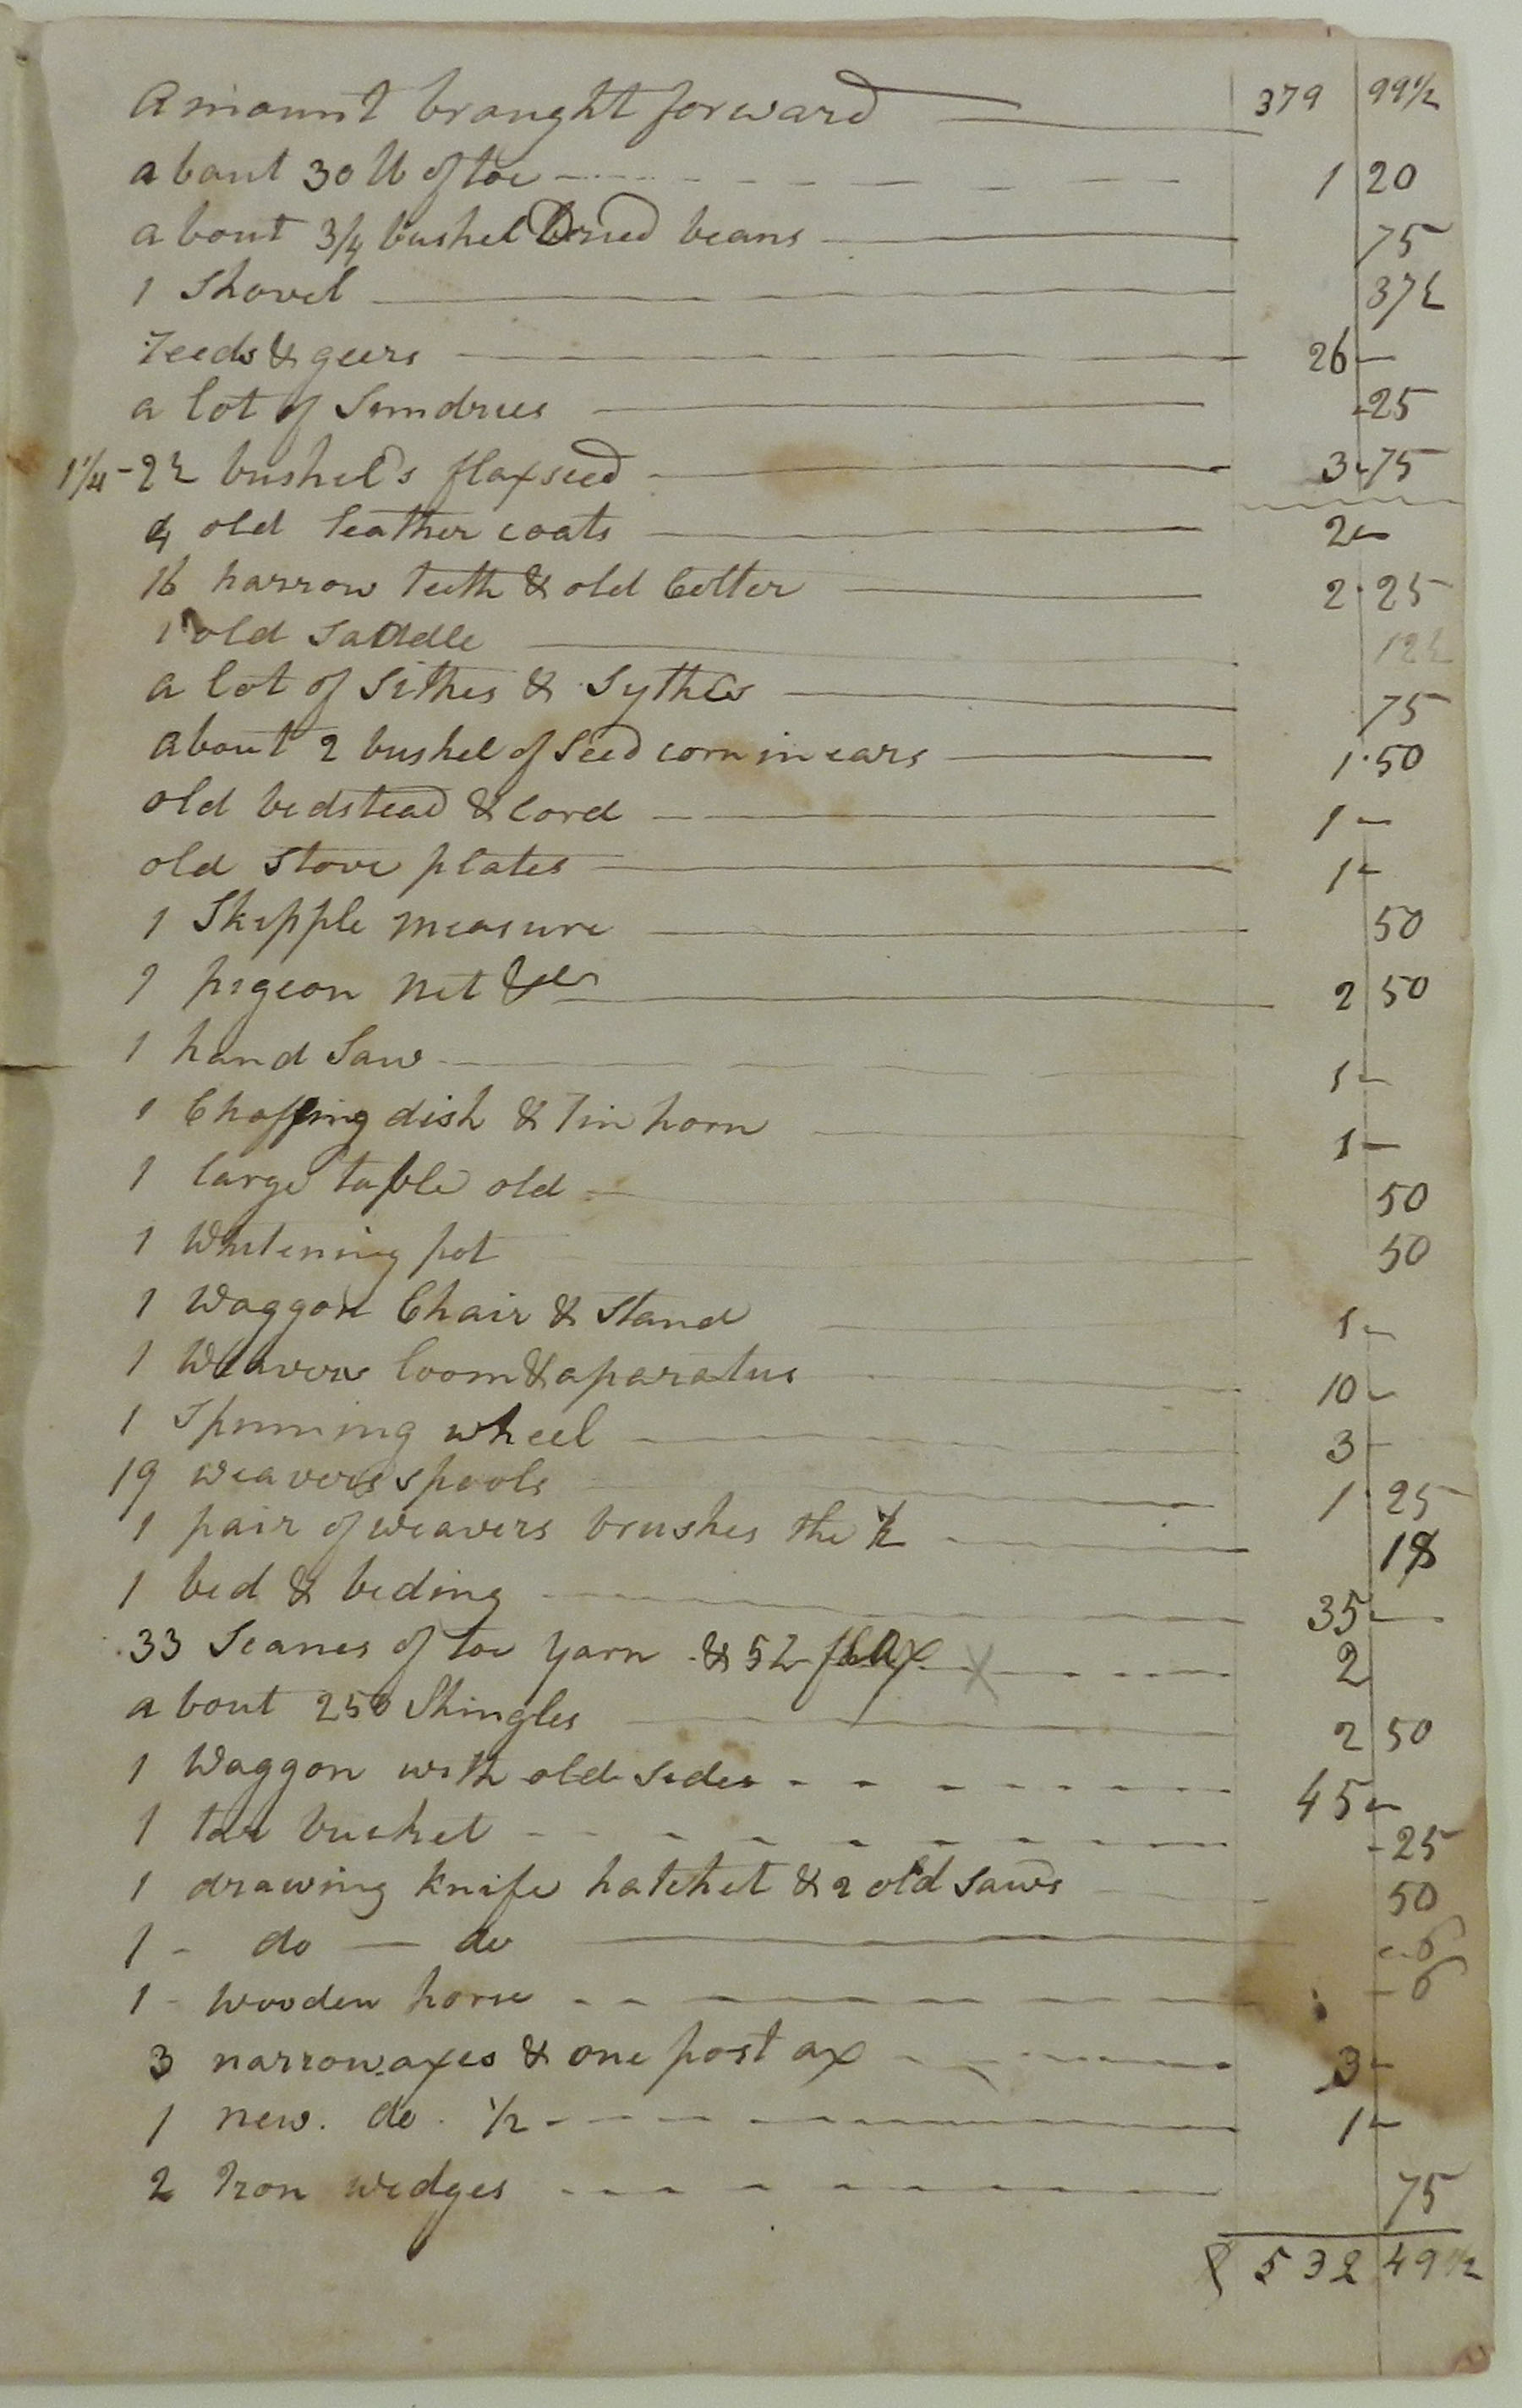 Amount brought forward 379 99 1/2
about 30 lb of toe 1 20
about 3/4 bushel Dried beans 75
1 Shovel 37 1/2
reeds & geers 26 —
a lot of Sundries - 25
1 1/4 - 2 1/2 bushel's flaxseed 3 - 75
4 old leather coats 2 —
16 harrow teeth & old Colter 2 . 25
1 old Saddle 12 1/2
a lot of Sithes & Sythes 75
about 2 bushel of Seed corn in ears 1 . 50
old bedstead & Cord 1 —
old Stove plates 1 —
1 Skipple measure 50
1 pigeon net &c 2 50
1 hand Saw 1 —
1 Chaffing dish & Tin horn 1 —
1 large table old 50
1 Whitening pot 50
1 Waggon Chair & Stand 1 —
1 Weavers loom & aparatus 10 —
1 Spinning wheel 3 —
19 weavers spools 1 . 25
1 pair of weavers brushes the 1/2 18
1 bed & beding 35 —
33 Scanes of toe yarn & 52 flax X 2
about 250 Shingles 2 50
1 Waggon with old Sides 45 —
1 tar bucket - 25
1 drawing knife hatchet & 2 old saws 50
1 - do — do - 6
1 - wooden horse - 6
3 narrow axes & one post ax 3 —
1 new . do . 1/2 1 —
2 Iron wedges 75
$ 532 49 1/2